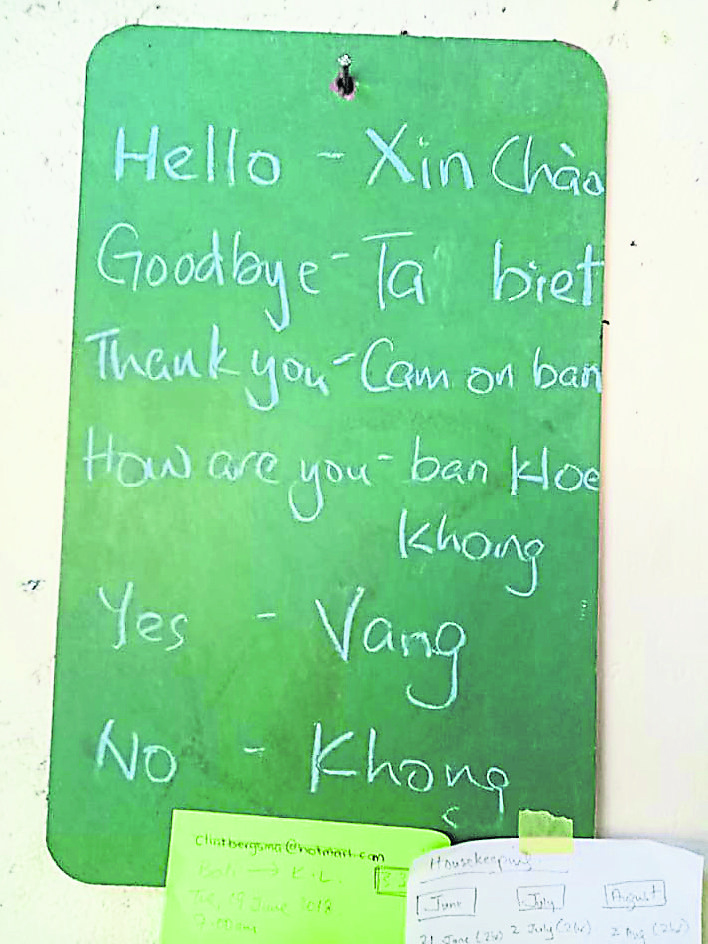 Hello - Xin Chào
Goodbye - Tạ biet
Thank you - Cam on ban
How are you - ban Khoe
Khong
Yes - Vang
No - Khong
Bali → K.L.
Tue, 19 June 2018
7:00am
Housekeeping
June July August
21 June (2hr) 2 July (2hr) 2 Aug (2hr)